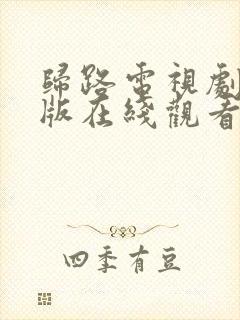 歸路電視劇
版在綫觀看
四季有豆